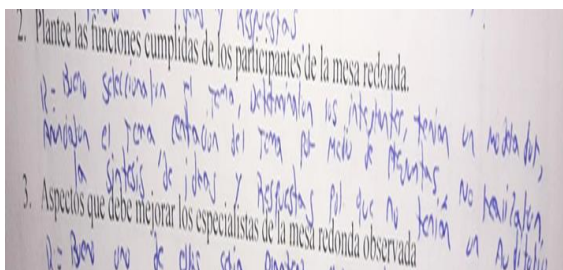 y respuestas
2. Plantee las funciones cumplidas de los participantes de la mesa redonda.
R= Bueno seleccionaron el tema, determinaron los integrantes, tenian un moderador,
Anuncian el Tema del Tema por medio de preguntas No realizaban
la sintesis de ideas y Respuestas por que no tenian un Auditorio
3. Aspectos que debe mejorar los especialistas de la mesa redonda observada
R= Bueno uno de ellos seria